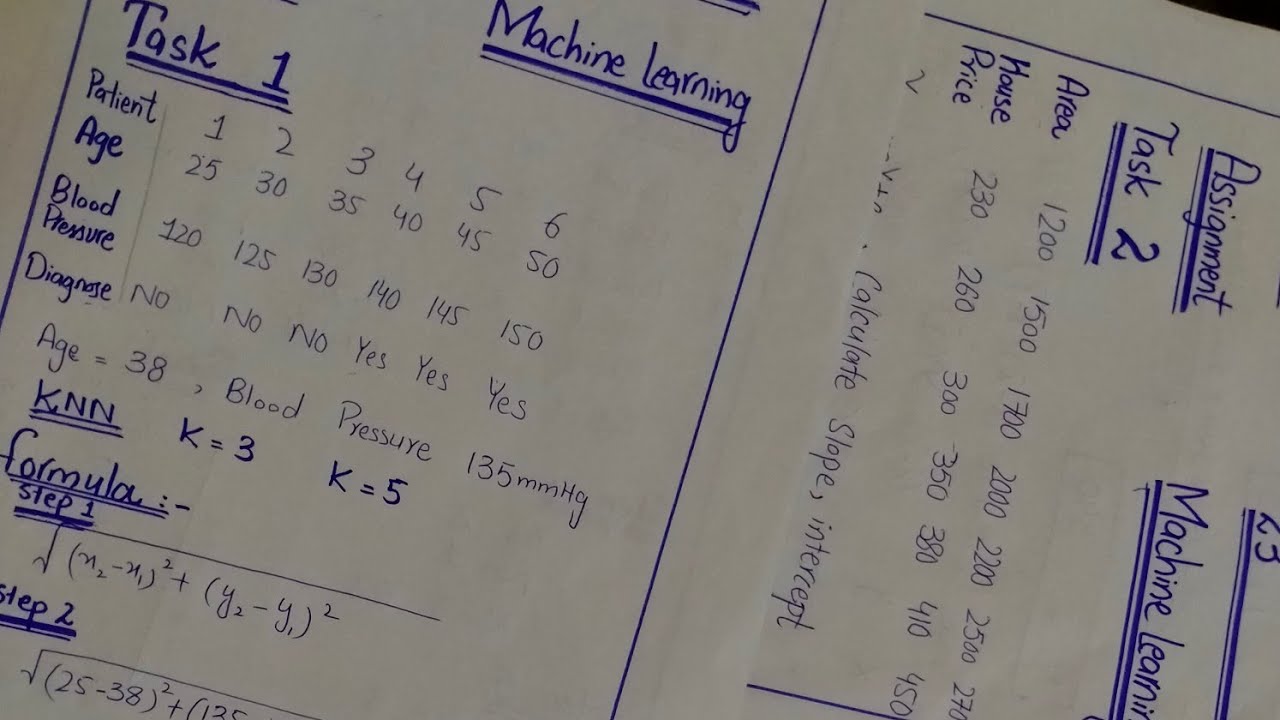 Task 1
Machine Learning
Patient 1 2 3 4 5 6
Age 25 30 35 40 45 50
Blood
Pressure 120 125 130 140 145 150
Diagnose NO NO NO Yes Yes Yes
Age = 38 , Blood Pressure 135mmHg
KNN K = 3 K = 5
formula :-
Step 1
√(x₂-x₁)²+ (y₂-y₁)²
Step 2
√(25-38)²+(135
Assignment
Task 2
Machine Learnin
23
Area 1200 1500 1700 2000 2200 2500 270
House
Price 230 260 300 350 380 410 450
Calculate Slope, intercept